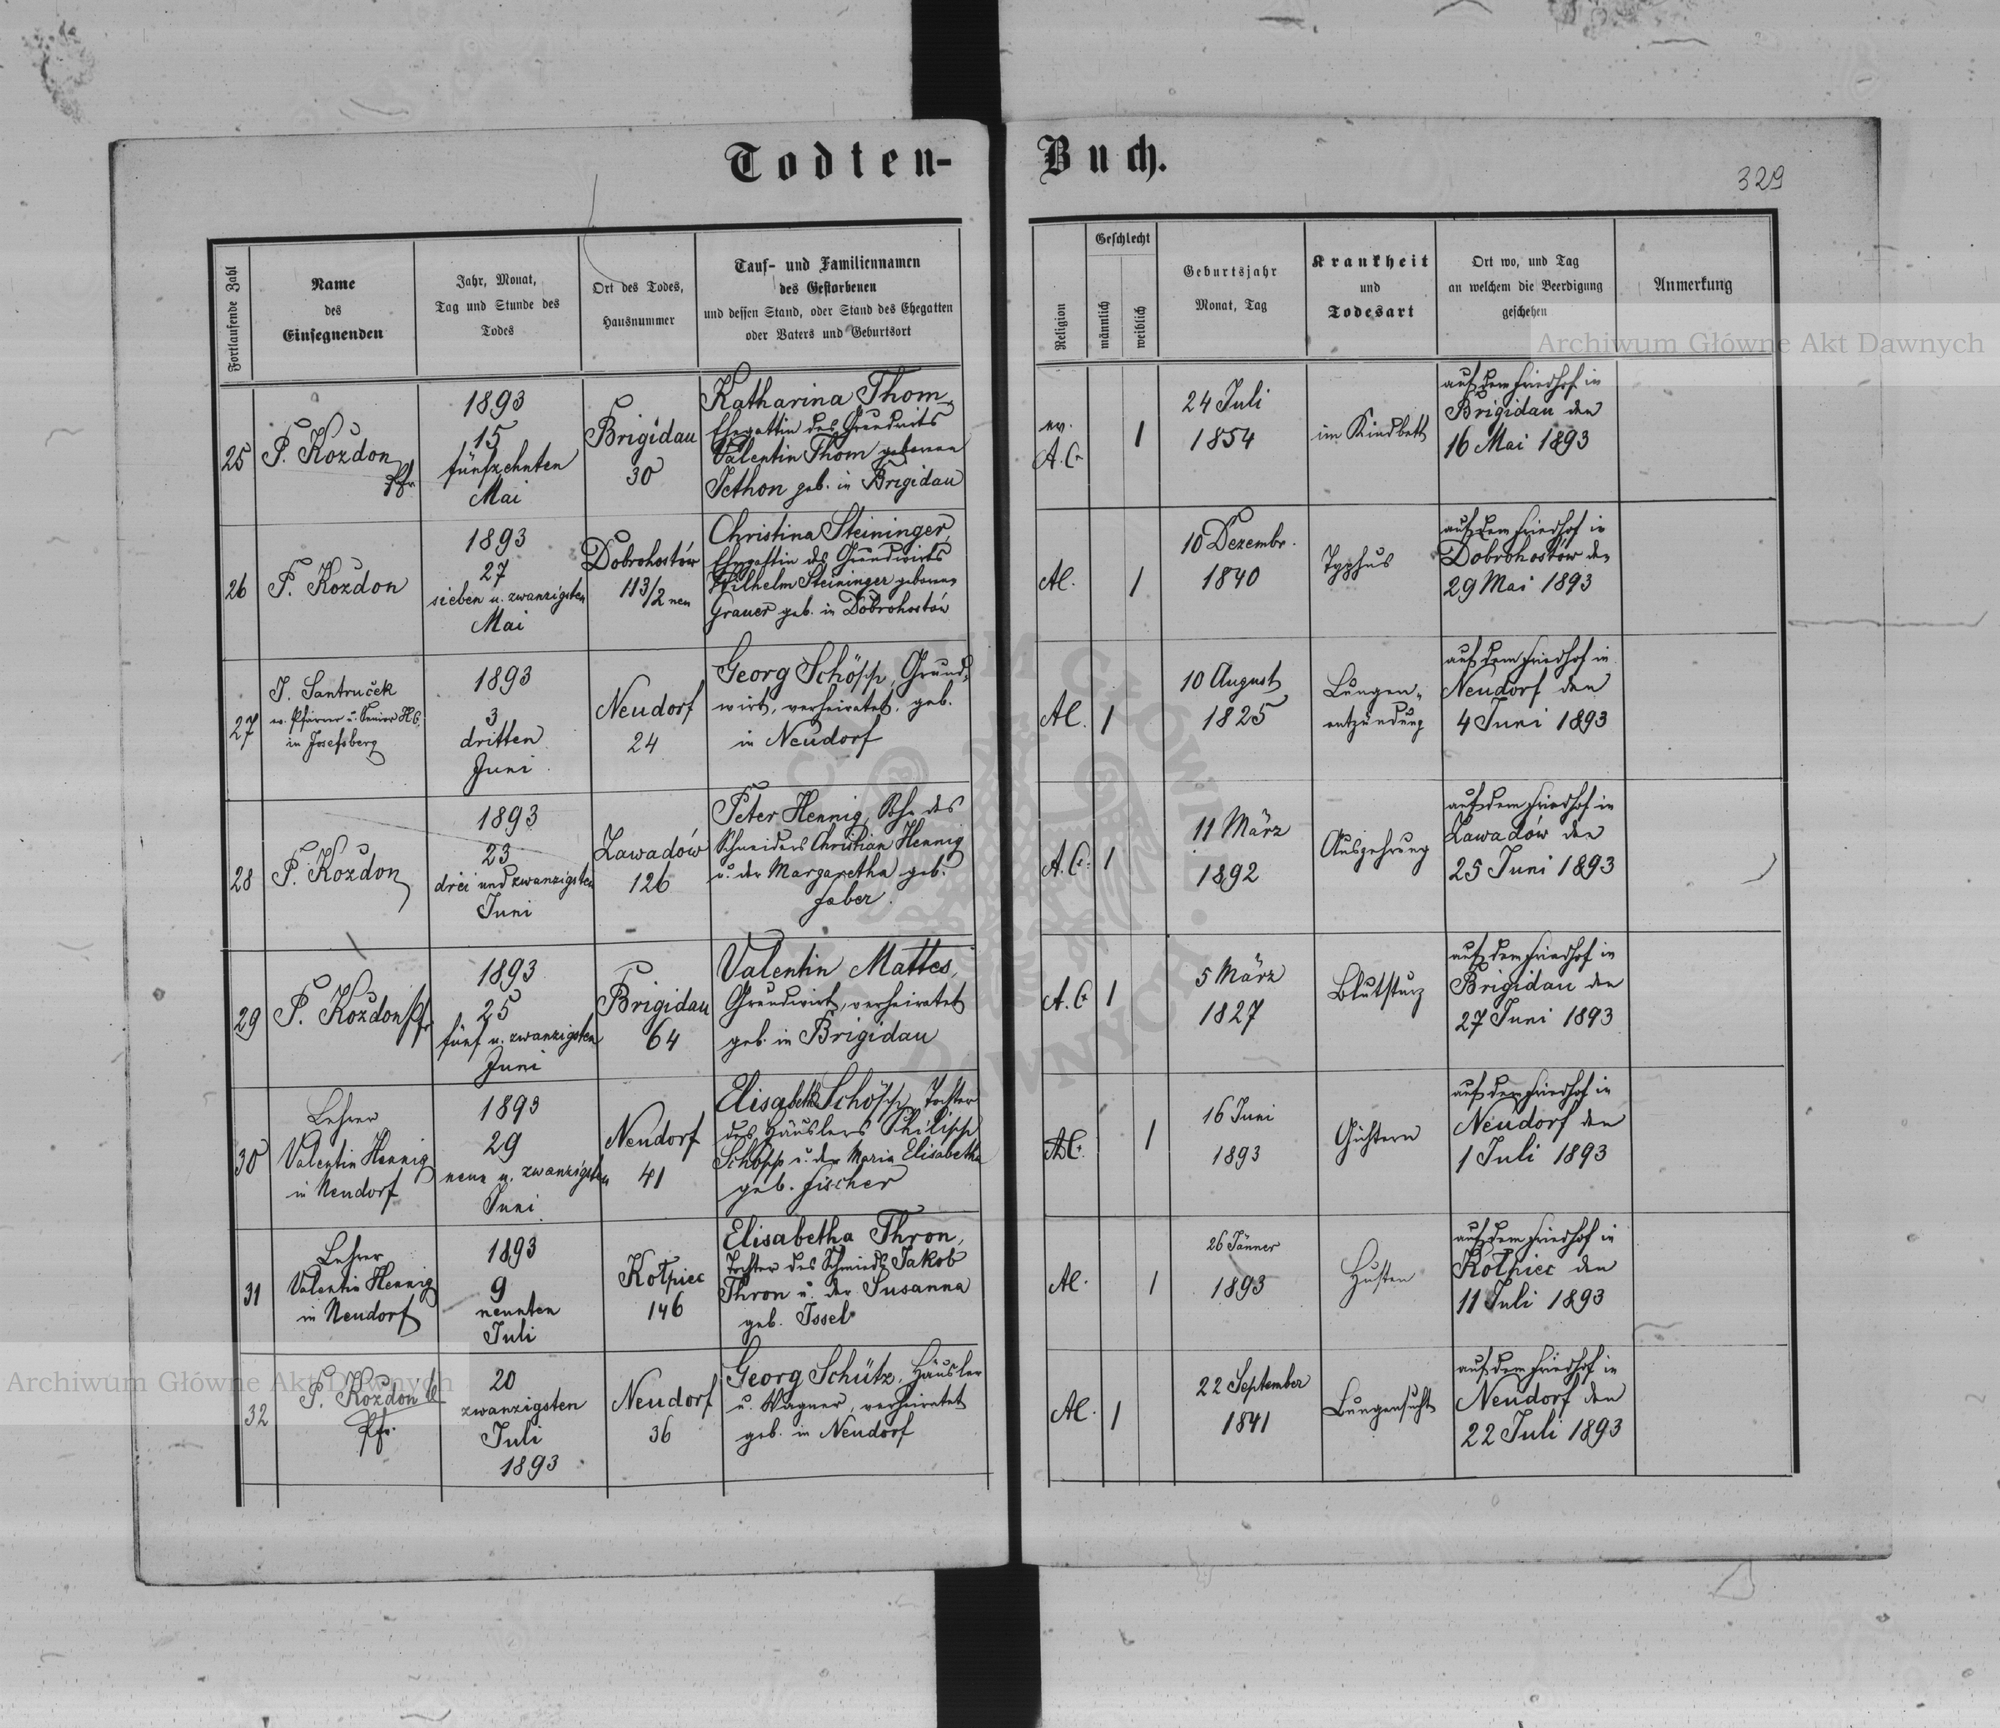 Todten-Buch.
329
Fortlaufende Zahl
Name
des
Einsegnenden
Jahr, Monat,
Tag und Stunde des
Todes
Ort des Todes,
Hausnummer
Tauf- und Familiennamen
des Gestorbenen
und dessen Stand, oder Stand des Ehegatten
oder Vaters und Geburtsort
Religion
Geschlecht
männlich
weiblich
Geburtsjahr
Monat, Tag
Krankheit
und
Todesart
Ort wo, und Tag
an welchem die Beerdigung
geschehen
Anmerkung
25
P. Kozdon
Pfr.
1893
15
fünfzehnten
Mai
Brigidau
30
Katharina Thom,
Ehegattin des Grundwirts
Valentin Thom geborene
Jethon geb. in Brigidau
ev.
A. C.
1
24 Juli
1854
im Kindbett
auf dem Friedhof in
Brigidau den
16 Mai 1893
26
P. Kozdon
1893
27
sieben u. zwanzigsten
Mai
Dobrohostów
113/2 neu
Christina Steininger,
Ehegattin des Grundwirts
Wilhelm Steininger geborene
Grauer geb. in Dobrohostów
AC.
1
10 Dezembr.
1840
Typhus
auf dem Friedhof in
Dobrohostów den
29 Mai 1893
27
J. Santruček
ev. Pfarrer u. Senior HC
in Josefsberg
1893
3
dritten
Juni
Neudorf
24
Georg Schöpp, Grund-
wirt, verheiratet, geb.
in Neudorf
AC.
1
10 August
1825
Lungen-
entzündung
auf dem Friedhof in
Neudorf den
4 Juni 1893
28
P. Kozdon
1893
23
drei und zwanzigsten
Juni
Zawadów
126
Peter Hennig, Sohn des
Schneiders Christian Hennig
u. der Margaretha geb.
Faber.
A. C.
1
11 März
1892
Auszehrung
auf dem Friedhof in
Zawadów den
25 Juni 1893
29
P. Kozdon Pfr
1893
25
fünf u. zwanzigsten
Juni
Brigidau
64
Valentin Mattes,
Grundwirt, verheiratet
geb. in Brigidau
A. C
1
5 März
1827
Blutsturz
auf dem Friedhof in
Brigidau den
27 Juni 1893
30
Lehrer
Valentin Hennig
in Neudorf
1893
29
neun u. zwanzigsten
Juni
Neudorf
41
Elisabeth Schöpp, Tochter
des Häuslers Philipp
Schöpp u. der Maria Elisabetha
geb. Fischer
AC.
1
16 Juni
1893
Gichtern
auf dem Friedhof in
Neudorf den
1 Juli 1893
31
Lehrer
Valentin Hennig
in Neudorf
1893
9
neunten
Juli
Kołpiec
146
Elisabetha Thron,
Tochter des Schmieds Jakob
Thron u. der Susanna
geb. Issel
AC.
1
26 Jänner
1893
Husten
auf dem Friedhof in
Kołpiec den
11 Juli 1893
32
P. Kozdon
Pfr.
20
zwanzigsten
Juli
1893
Neudorf
36
Georg Schütz, Häusler
u. Wagner, verheiratet
geb. in Neudorf
AC.
1
22 September
1841
Lungensucht
auf dem Friedhof in
Neudorf den
22 Juli 1893
Archiwum Główne Akt Dawnych
Archiwum Główne Akt Dawnych